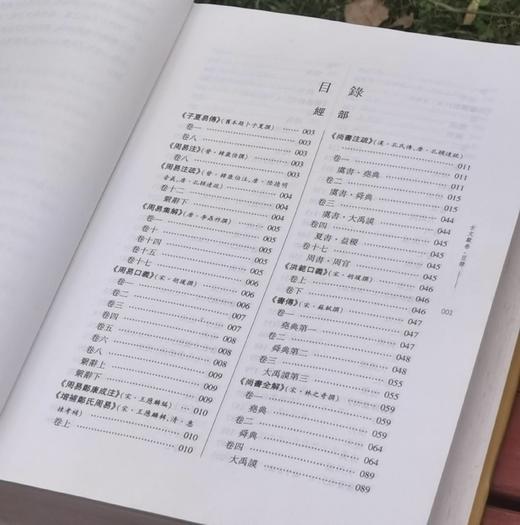 目錄
經部
《子夏易傳》(舊本題卜子夏撰) …… 003
卷一 …… 003
卷八 …… 003
《周易注》(晉·韓康伯撰) …… 003
卷八 …… 003
《周易注疏》(晉·韓康伯注,唐·陸德明
音義,唐·孔穎達疏) …… 004
卷十二 …… 004
繫辭下 …… 004
《周易集解》(唐·李鼎祚撰) …… 005
卷一 …… 005
卷十 …… 005
卷十四 …… 005
卷十五 …… 005
卷十七 …… 005
《周易口義》(宋·胡瑗撰) …… 006
卷一 …… 006
卷二 …… 006
卷三 …… 007
卷四 …… 007
卷五 …… 008
卷六 …… 008
卷八 …… 009
繫辭上 …… 009
繫辭下 …… 009
《周易鄭康成注》(宋·王應麟編) …… 010
《增補鄭氏周易》(宋·王應麟輯,清·惠
棟考補) …… 010
卷上 …… 010
《尚書注疏》(漢·孔氏傳,唐·孔穎達疏)
…… 011
卷一 …… 011
虞書·堯典 …… 011
卷二 …… 041
虞書·舜典 …… 041
卷三 …… 045
虞書·大禹謨 …… 045
卷四 …… 045
夏書·益稷 …… 045
卷十七 …… 045
周書·周官 …… 045
《洪範口義》(宋·胡瑗撰) …… 046
卷上 …… 046
卷下 …… 046
《書傳》(宋·蘇軾撰) …… 047
卷一 …… 047
堯典第一 …… 047
卷二 …… 048
舜典第二 …… 048
卷三 …… 055
大禹謨第三 …… 055
《尚書全解》(宋·林之奇撰) …… 059
卷一 …… 059
堯典 …… 059
卷二 …… 064
舜典 …… 064
卷四 …… 089
大禹謨 …… 089
002